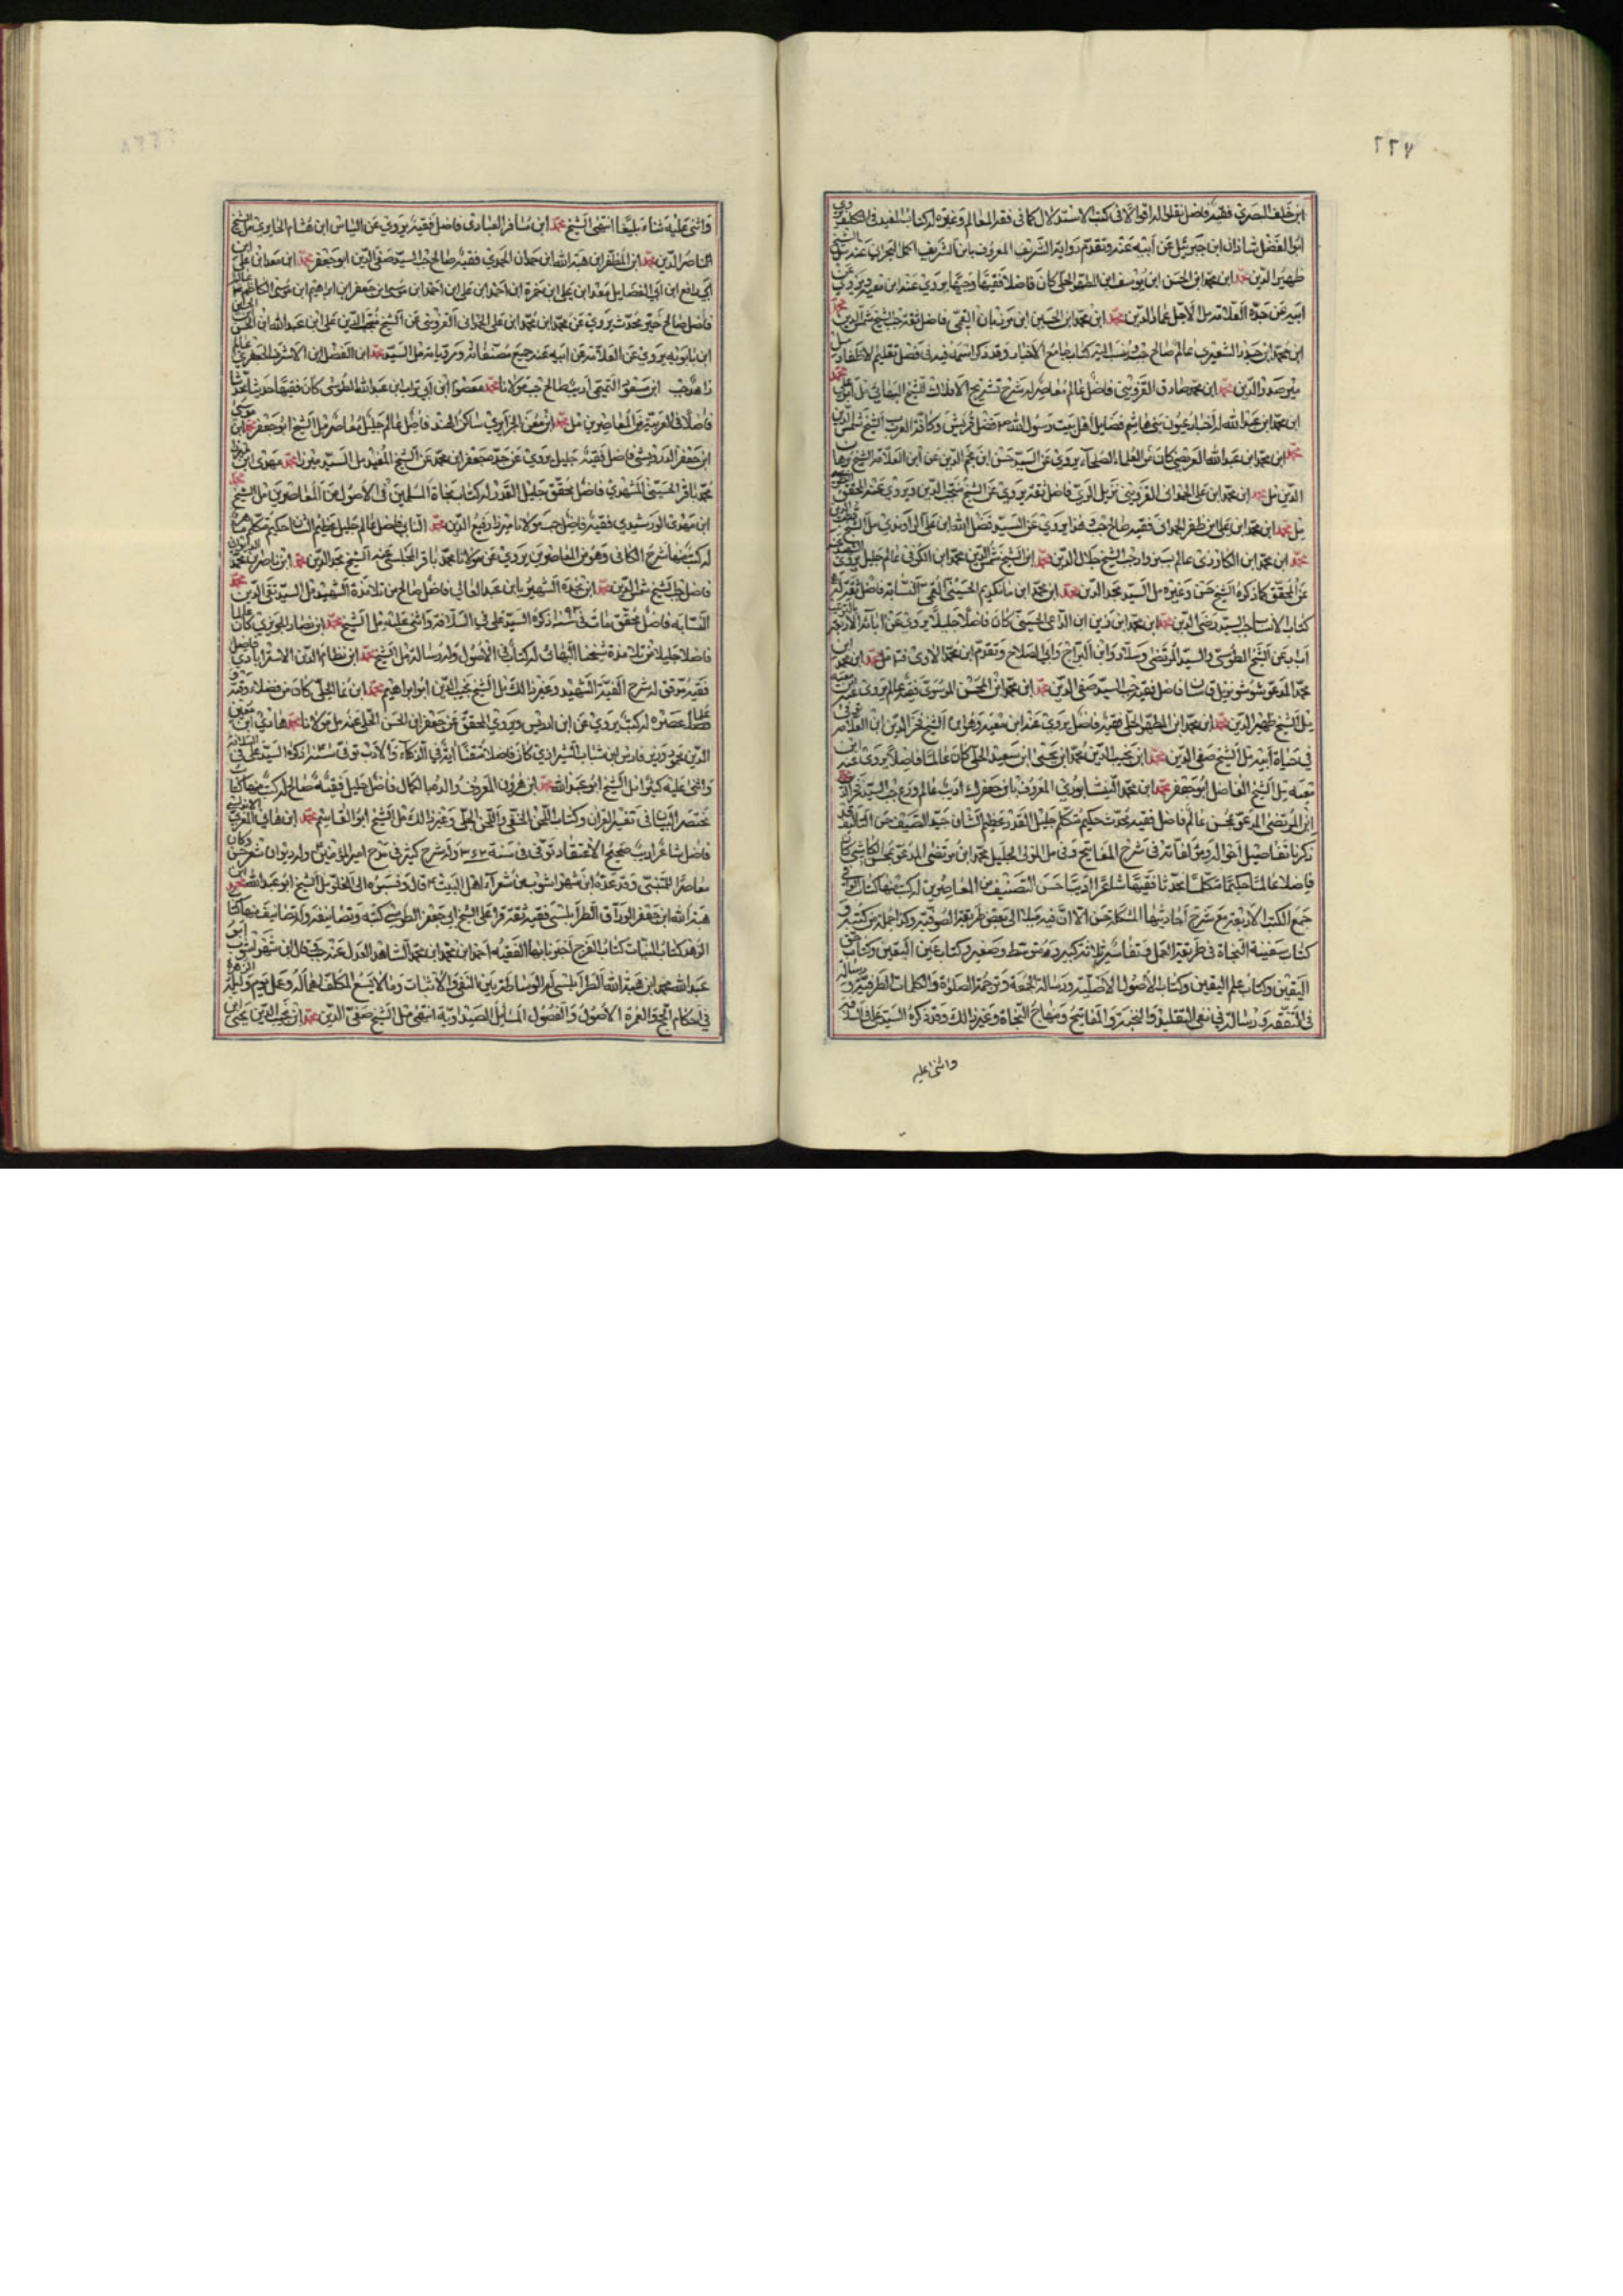 ٢٢٧
ابن خلف البصري فقيه فاضل نقلوا له اقوالا في كتب الاستدلال كما في فقر المعالم وغيره له كتاب المفيد في التكليف
ابو الفضل شاذان ابن جبرئيل عن ابيه عنه وتقدم رواية الشريف المعروف بابن الشريف اكمل البحراني عنه
ظهير الدين محمد ابن محمد ابن الحسن ابن يوسف ابن المطهر الحلي كان فاضلا فقيها وجيها يروي عنه ابن معية ويروي عن
ابيه عن جده العلامة مل الأجل عماد الدين محمد ابن محمد ابن الحسين ابن مرزبان القمي فاضل ثقة جب الشيخ شمس الدين محمد
ابن محمد ابن حيدر الشعيري عالم صالح جب وينسب اليه كتاب جامع الاخبار وقد ذكر اسمه فيه في فصل تقليم الاظفار مل
ميرصدر الدين محمد ابن محمد صادق القزويني فاضل عالم معاصر له شرح تشريح الافلاك للشيخ البهائي مل ابو علي محمد
ابن محمد ابن عبد الله له اخبار عيون بني هاشم فضايل اهل بيت رسول الله فضل قريش وكافة العرب الشيخ شمس الدين
محمد ابن محمد ابن عبد الله العريضي كان من العلماء الصلحاء يروي عن السيد حسن ابن نجم الدين عن ابن العلامة الشيخ برهان
الدين مل محمد ابن محمد ابن علي الحمداني القزويني نزيل الري فاضل ثقة يروي عن الشيخ منتجب الدين ويروي عنه المحقق
مل محمد ابن محمد ابن علي ابن ظفر الحمداني فقيه صالح جب وهذا يروي عن السيد فضل الله ابن علي الراوندي مل الشيخ
محمد ابن محمد ابن الكازري عالم بسبزوار جب الشيخ جلال الدين محمد ابن الشيخ شمس الدين محمد ابن الكوفي عالم جليل يروي
عن المحقق كما ذكره الشيخ حسن وغيره مل السيد مجد الدين محمد ابن محمد ابن مانكديم الحسيني القمي النسابة فاضل ثقة له
كتاب الانساب جب السيد رضي الدين محمد ابن محمد ابن زين ابن الداعي الحسيني كان فاضلا جليلا يروي عن ابائه الاربعة
اب اب عن الشيخ الطوسي والسيد المرتضى وسلار وابن البراج وابي الصلاح وتقدم ابن محمد الاوي فتد مل محمد ابن محمد
محمد المدعو شوشو نزيل قاسان فاضل فقيه جب السيد صفي الدين محمد ابن محمد ابن المحسن الموسوي فقيه عالم يروي عنه ابن معية
مل الشيخ ظهير الدين محمد ابن محمد ابن المطهر الحلي فقيه فاضل يروي عنه ابن معية وهو ابن الشيخ فخر الدين ابن العلامة
في حياة ابيه مل الشيخ صفي الدين محمد ابن نجيب الدين محمد ابن يحيى ابن سعيد الحلي كان عالما فاضلا يروي عنه ابن
معية مل الشيخ الفاضل ابو جعفر محمد ابن محمد النيشابوري المعروف بابن جعفرك اديب عالم ورع جب السيد فخر الدين
ابن المرتضى المدعو بمحسن عالم فاضل فقيه محدث حكيم متكلم جليل القدر عظيم الشان جيد التصنيف حسن التاليف
ذكر بالتفاصيل احواله ومؤلفاته في شرح المفاتيح وفي مل المولى الجليل محمد ابن مرتضى المدعو بمحسن الكاشي كان
فاضلا عالما حكيما متكلما محدثا فقيها شاعرا اديبا حسن التصنيف من المعاصرين له كتب منها كتاب الوافي
جمع الكتب الاربعة مع شرح احاديثها المشكلة حسن الا ان فيه ميلا الى بعض طريقة الصوفية وكذا جملة من كتبه و
كتاب سفينة النجاة في طريقة العمل وتفاسير ثلاثة كبير ومتوسط وصغير وكتاب عين اليقين وكتاب حق
اليقين وكتاب علم اليقين وكتاب الأصول الاصلية ورسالة الجمعة وترجمة الصلوة والكلمات الطريفة ورسالة
في التفقه ورسالة في نفي التقليد والنخبة والمفاتيح ومنهاج النجاة وغير ذالك وقد ذكره السيد علي في السلافة
واثنى عليه
واثنى عليه ثناء بليغا انتهى الشيخ محمد ابن مسافر العبادي فاضل فقيه يروي عن الياس ابن هشام الحايري مل الشيخ
الناصر الدين محمد ابن المظفر ابن هبة الله ابن حمدان الحمدي فقيه صالح جب السيد صفي الدين ابو جعفر محمد ابن معد ابن علي ابن
ابي رافع ابن ابي الفضايل معد ابن علي ابن حمزة ابن احمد ابن علي ابن احمد ابن موسى ابن جعفر ابن ابراهيم ابن موسى الكاظم
فاضل صالح خير محدث يروي عن محمد ابن محمد ابن علي الحمداني القزويني عن الشيخ منتجب الدين علي ابن عبد الله ابن الحسن
ابن بابويه يروي عن العلامة عن ابيه عنه جميع مصنفاته ومروياته مل السيد محمد ابن الفضل ابن الاشرف الجعفري عالم
زاهد جب ابن مسعود التميمي اديب صالح جب مولانا محمد معصوم ابن ابي تراب ابن عبد الله الطوسي كان فقيها محدثا
فاضلا في العربية من المعاصرين مل محمد ابن معن الجزايري ساكن الهند فاضل عالم جليل معاصر مل الشيخ ابو جعفر محمد ابن موسى
ابن جعفر الدوريستي فاضل فقيه جليل يروي عن جده جعفر ابن محمد عن الشيخ المفيد مل السيد ميرزا محمد مهدي ابن
محمد باقر الحسيني المشهدي فاضل محقق جليل القدر له كتاب نجاة المسلمين في الأصول من المعاصرين مل الشيخ محمد
ابن مهدي الورشيدي فقيه فاضل جب مولانا ميرزا رفيع الدين محمد النايني فاضل عالم جليل عظيم الشان حكيم متكلم
له كتب منها شرح الكافي وهو من المعاصرين يروي عن مولانا محمد باقر المجلسي عنه الشيخ مجد الدين محمد ابن ناصر بن محمد
فاضل جب الشيخ شمس الدين محمد ابن نجدة الشهير بابن عبد العالي فاضل صالح من تلامذة الشهيد مل السيد تقي الدين محمد
النسابه فاضل محقق مات في ذكره السيد علي في السلافة واثنى عليه مل الشيخ محمد ابن نصار الحويزي كان عالما
فاضلا جليلا من تلامذة شيخنا البهائي له كتاب في الأصول وله رسالة مل الشيخ محمد ابن نظام الدين الاستر ابادي فاضل
فقيه موفق له شرح الفية الشهيد وغير ذالك مل الشيخ نجيب الدين ابو ابراهيم محمد ابن نما الحلي كان من فضلاء وقته
وعلماء عصره له كتب يروي عن ابن ادريس ويروي المحقق عن جعفر ابن الحسن الحلي عنه مل مولانا محمد هادي ابن معين
الدين محمود وزير فارس ابن شاب الشيرازي كان فاضلا متفننا اية في الذكاء والادب توفي ذكره السيد علي في السلافة
واثنى عليه كثيرا مل الشيخ ابو عبد الله محمد ابن هرون المعروف والده بالكال فاضل جليل فقيه صالح له كتب منها كتاب
مختصر التبيان في تفسير القران وكتاب اللحن الخفي واللحن الجلي وغير ذالك مل الشيخ ابو القاسم محمد ابن هاني المغربي الاندلسي
فاضل شاعر اديب صحيح الاعتقاد توفي في سنة وله شرح كثير في مدح امير المؤمنين وله ديوان شعر حسن وكان
معاصرا للمتنبي وقد عده ابن شهراشوب من شعراء اهل البيت قال ونسبوه الى الغلو مل الشيخ ابو عبد الله محمد ابن
هبة الله ابن جعفر الوراق الطرابلسي فقيه ثقة قرا على الشيخ ابي جعفر الطوسي كتبه وتصانيفه وله تصانيف منها كتاب
الزهد كتاب النيات كتاب الفرج اخبرنا بها الفقيه احمد ابن محمد ابن محمد الشاهد العدل عنه جب قال ابن شهراشوب ابو
عبد الله محمد ابن هبة الله الطرابلسي له الوساطة بين النفي والاثبات وما لا يسع المكلف اهماله وعمل يوم وليلة الزهرة
في احكام الحج والعمرة الأصول والفصول المسايل الصيداوية انتهى مل الشيخ صفي الدين محمد ابن نجيب الدين يحيى ابن